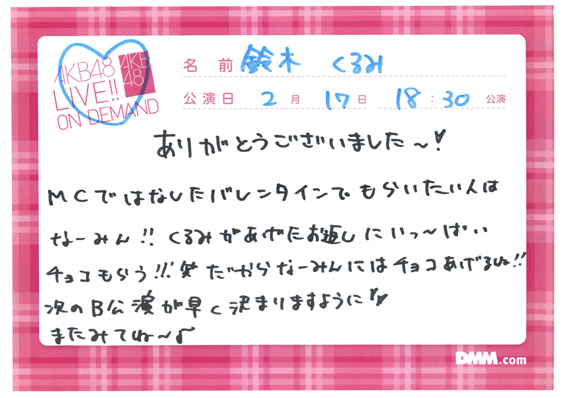 AKB48
LIVE!!
ON DEMAND
AKB
48
名 前 鈴木 くるみ
公演日 2月 17日 18:30 公演
ありがとうございました〜♡!
MCではなしたバレンタインでもらいたい人は
なーみん!! くるみがあげたお返しにいっ〜ぱい
チョコもらう!!! 笑 だからなーみんにはチョコあげるね!!
次のB公演が早く決まりますように♡
またみてね〜♪
DMM.com